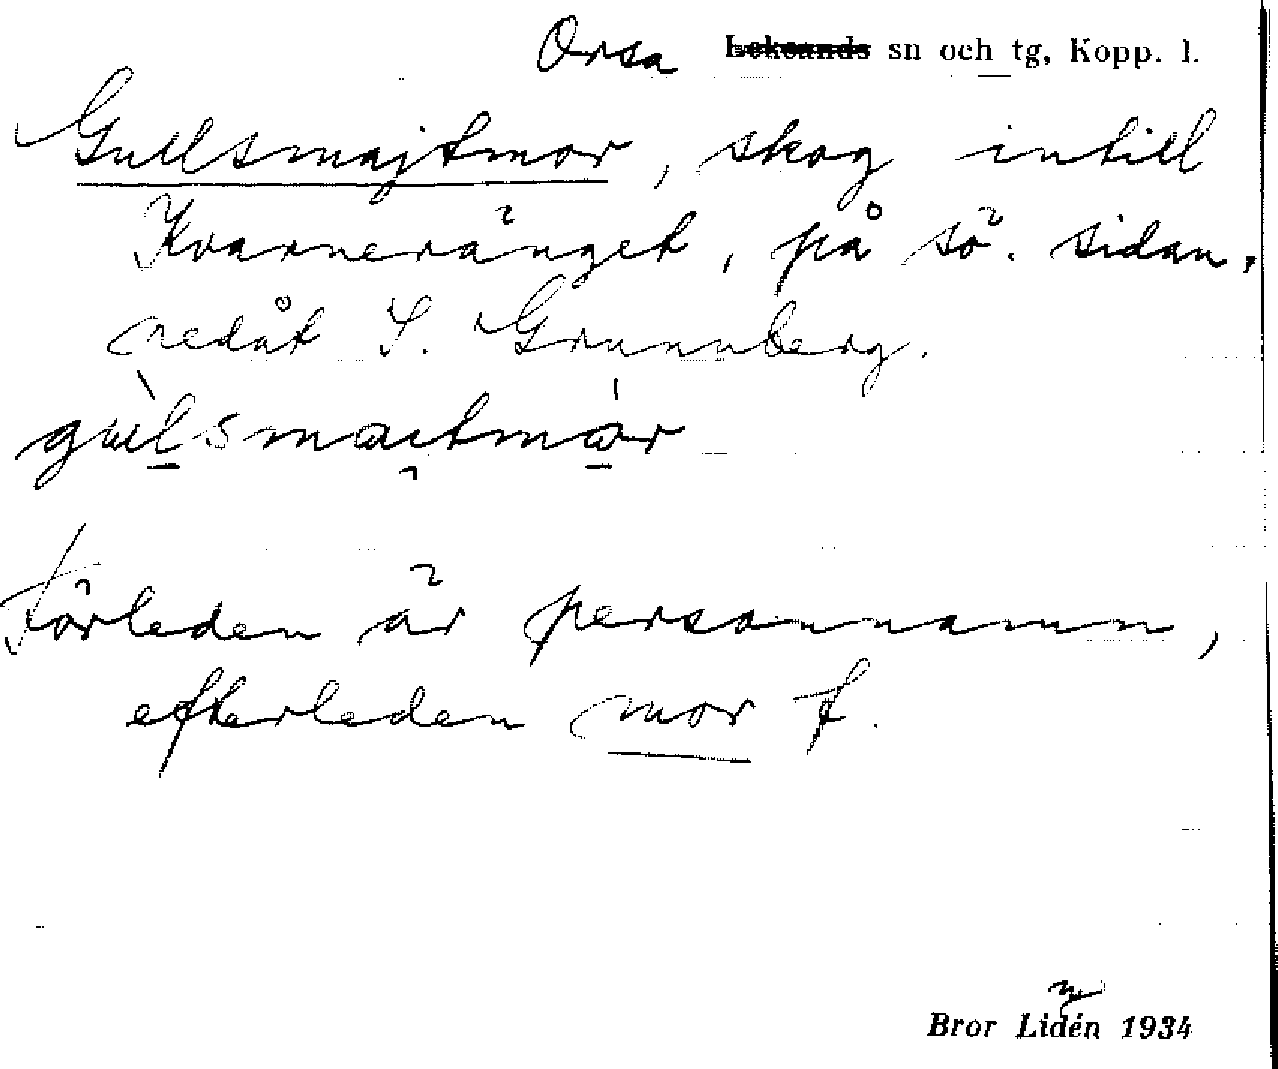 Orsa Leksands sn och tg, Kopp. l.
Gullsmajtmor, skog intill
Kvarneränget, på sö. sidan,
nedåt S. Grunuberg.
gulsmaitmor
Förleden är personnamn,
efterleden mor f.
Bror Lidén 1934